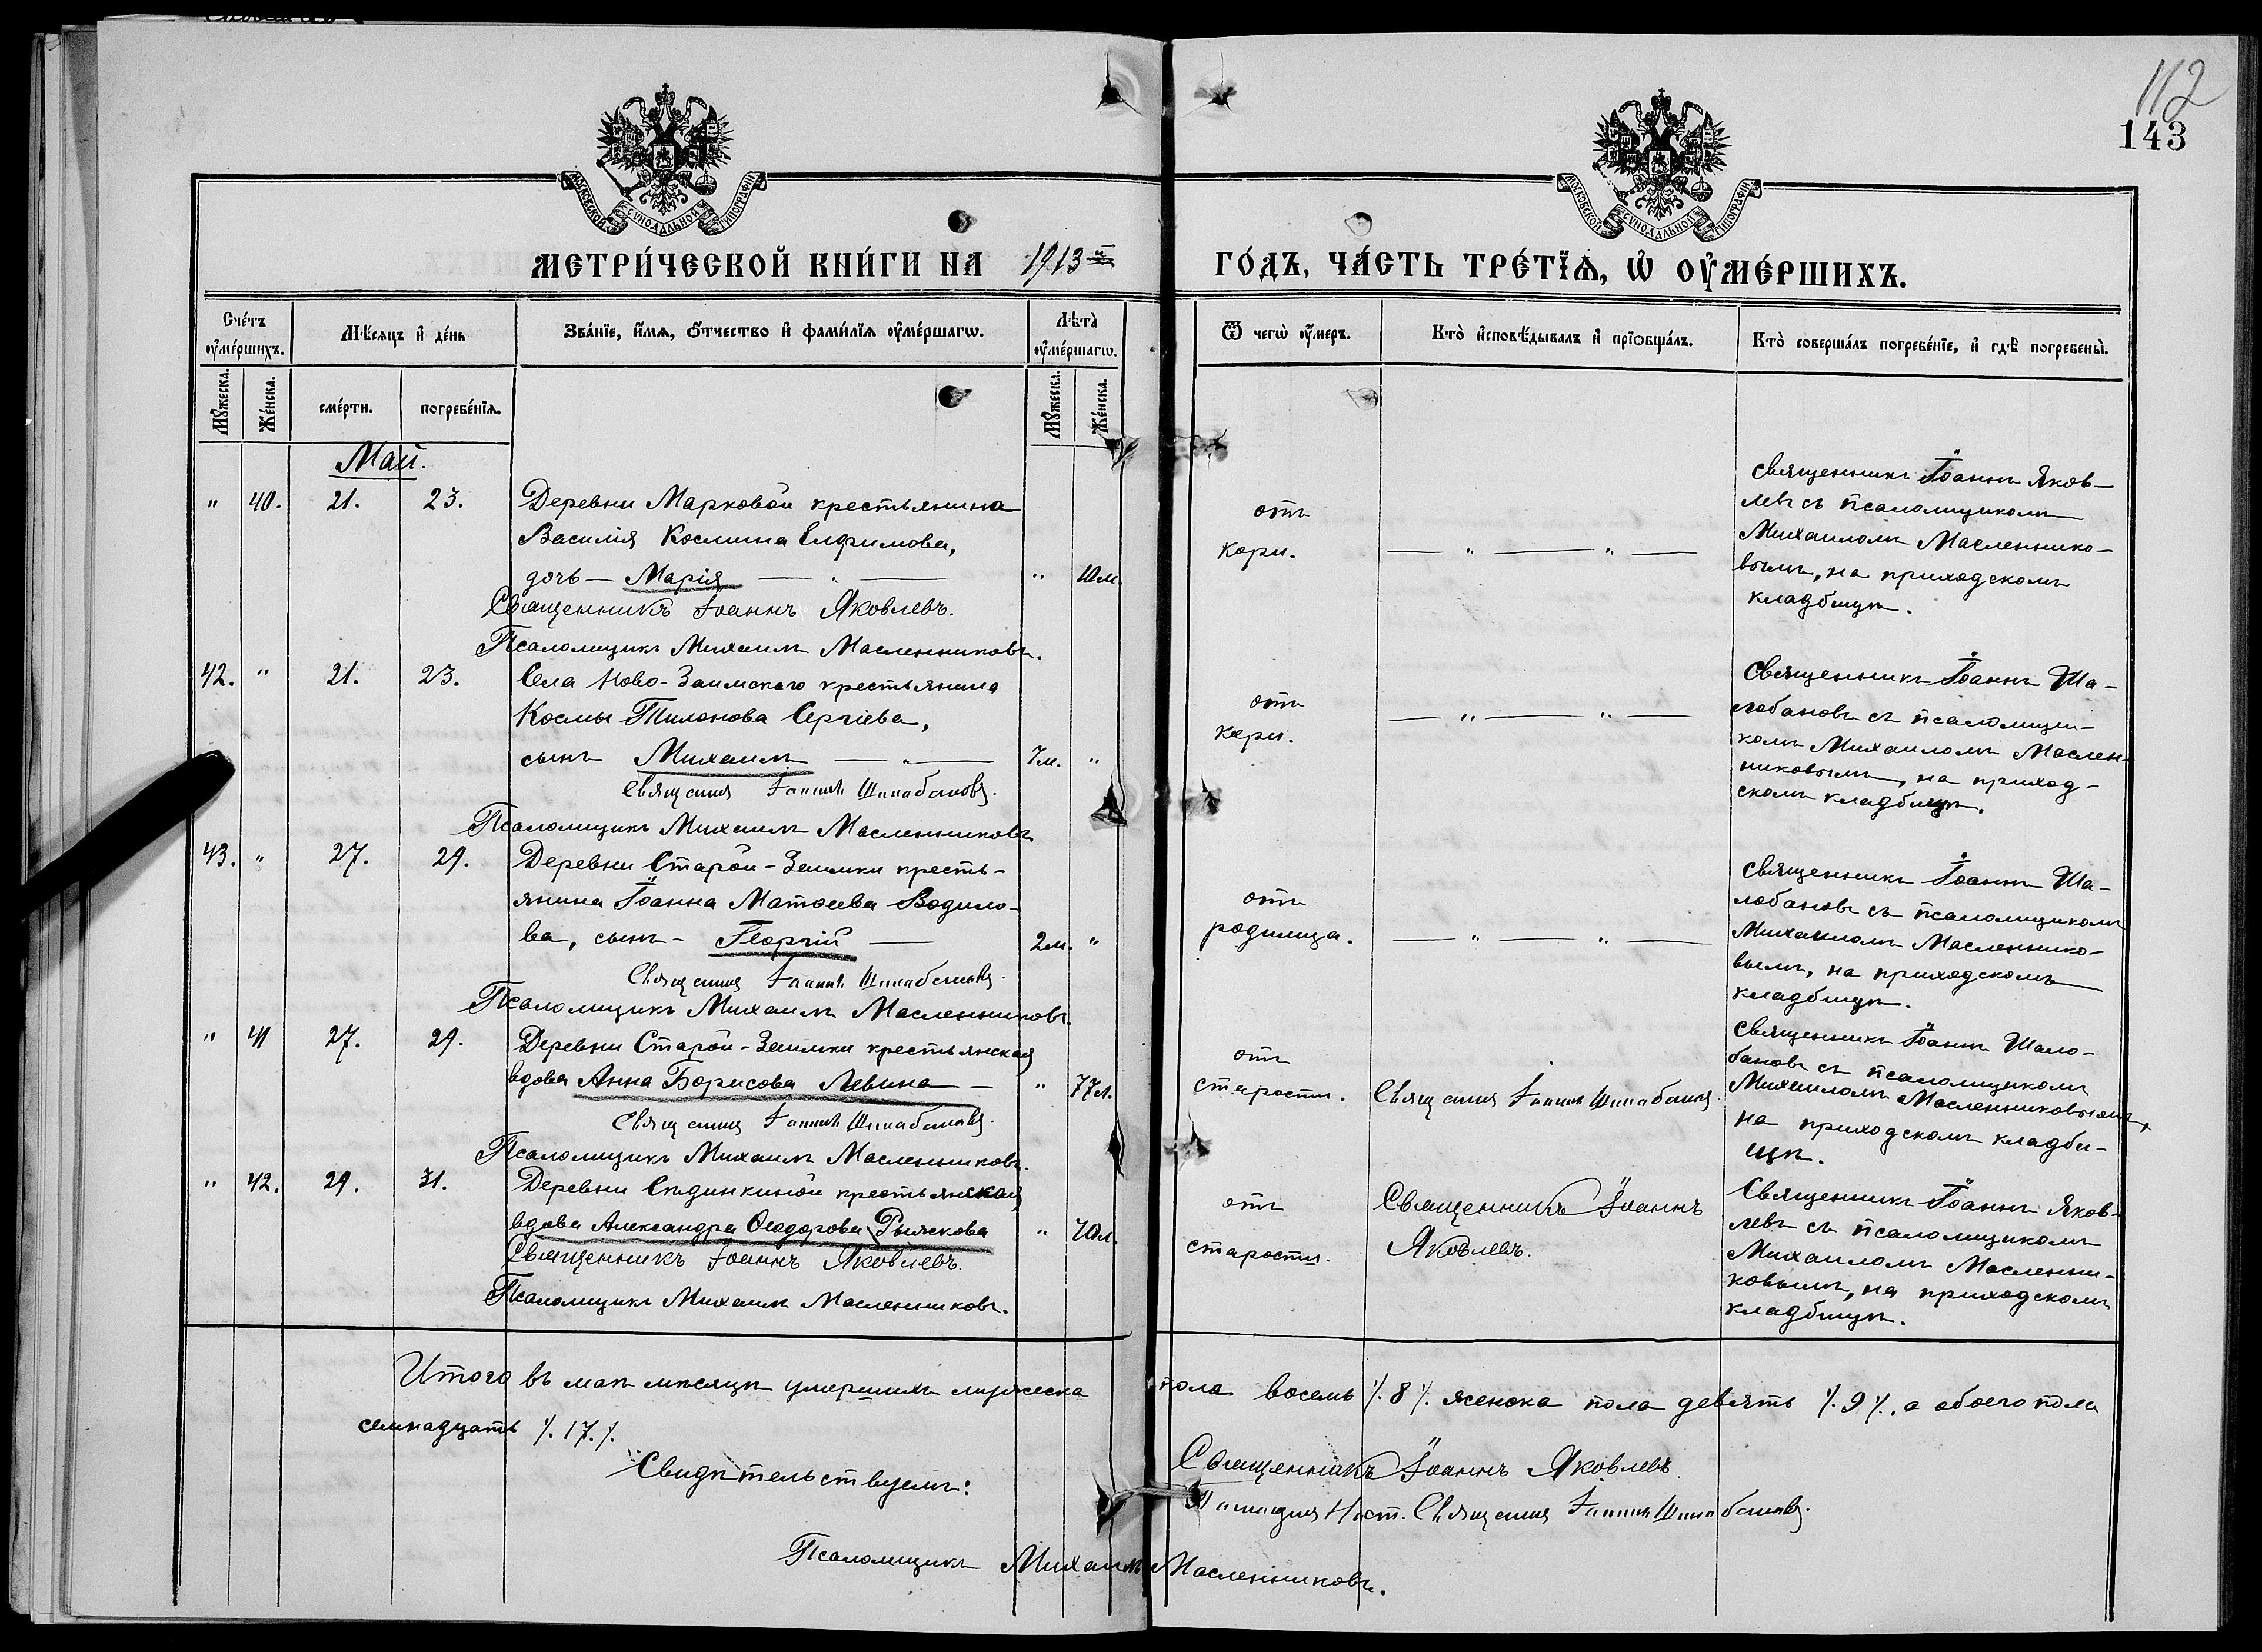 112
143
МОСКОВСКОЙ СѴНОДАЛЬНОЙ ТИПОГРАФІИ
МОСКОВСКОЙ СѴНОДАЛЬНОЙ ТИПОГРАФІИ
МЕТРИ́ЧЕСКОЙ КНИ́ГИ НА 1913 й ГО́ДЪ, ЧА́СТЬ ТРЕ́ТЇѦ, Ѡ҆ ОУ҆МЕ́РШИХЪ.
Сче́тъ оу҆ме́ршихъ.
Мѣ́сяцъ и҆ де́нь
Зва́нїе, и҆́мѧ, ѻ҆́тчество и҆ фами́лїѧ оу҆ме́ршагѡ.
Лѣта̀ оу҆ме́ршагѡ.
Ѿ чегѡ̀ оу҆́меръ.
Кто̀ и҆сповѣ́дывалъ и҆ прїѡбща́лъ.
Кто̀ соверша́лъ погребе́нїе, и҆ гдѣ̀ погребены̀.
Мꙋ́жеска.
Же́нска.
сме́рти.
погребе́нїѧ.
Мꙋ́жеска.
Же́нска.
Май.
" 40. 21. 23. Деревни Марковой крестьянина
Василія Космина Ефимова,
дочь — Марія — " — " 10м.
Священникъ Іоаннъ Яковлевъ.
Псаломщикъ Михаилъ Масленниковъ.
отъ
кори.
— " — " —
Священникъ Іоаннъ Яков-
левъ съ псаломщикомъ
Михаиломъ Масленнико-
вымъ, на приходскомъ
кладбищѣ.
42. " 21. 23. Села Ново-Заимскаго крестьянина
Космы Филонова Сергіева,
сынъ Михаилъ — " — 7м. "
Священникъ Іоаннъ Шалабановъ.
Псаломщикъ Михаилъ Масленниковъ
отъ
кори.
— " — " —
Священникъ Іоаннъ Ша-
лобановъ съ псаломщи-
комъ Михаиломъ Маслен-
никовымъ, на приход-
скомъ кладбищѣ.
43. " 27. 29. Деревни Старой-Заимки кресть-
янина Іоанна Матѳеева Водило-
ва, сынъ - Георгій — 2м. "
Священникъ Іоаннъ Шалабановъ.
Псаломщикъ Михаилъ Масленниковъ.
отъ
родимца.
— " — " —
Священникъ Іоаннъ Ша-
лобановъ съ псаломщикомъ
Михаиломъ Масленнико-
вымъ, на приходскомъ
кладбищѣ.
" 41 27. 29. Деревни Старой-Заимки крестьянская
вдова Анна Борисова Левина — " 77л.
Священникъ Іоаннъ Шалабановъ.
Псаломщикъ Михаилъ Масленниковъ.
отъ
старости.
Священникъ Іоаннъ Шалабановъ.
Священникъ Іоаннъ Шало-
бановъ съ псаломщикомъ
Михаиломъ Масленниковымъ,
на приходскомъ кладби-
щѣ.
" 42. 29. 31. Деревни Сединкиной крестьянская
вдова Александра Ѳеодорова Рычкова " 70л.
Священникъ Іоаннъ Яковлевъ.
Псаломщикъ Михаилъ Масленниковъ.
отъ
старости.
Священникъ Іоаннъ
Яковлевъ.
Священникъ Іоаннъ Яков-
левъ съ псаломщикомъ
Михаиломъ Масленни-
ковымъ, на приходскомъ
кладбищѣ.
Итого въ маѣ мѣсяцѣ умершихъ мужеска пола восемь /.8/. женска пола девять /.9/., а обоего пола
семнадцать /.17./.
Свидѣтельствуемъ:
Священникъ Іоаннъ Яковлевъ.
Наст. Священникъ Іоаннъ Шалабановъ.
Псаломщикъ Михаилъ Масленниковъ.